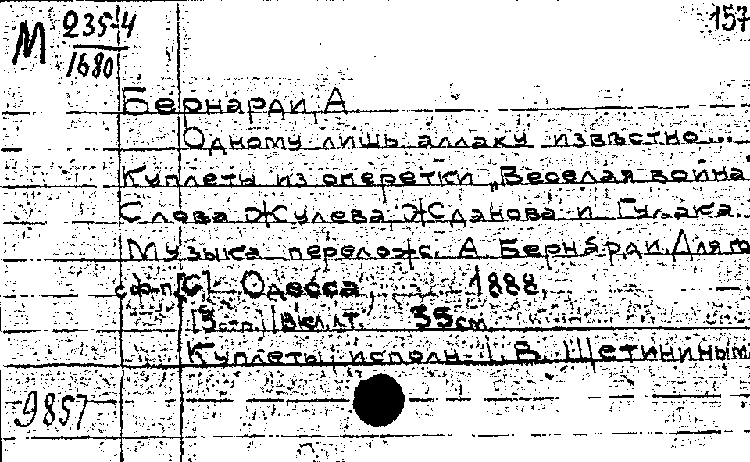 М 235-4
1680
157
Бернарди, А
Одному лишь аллаху извѣстно...
Куплеты из оперетки „Веселая война
Слова Жулева Жданова и Гулака.
Музыка перелож. А. Бернарди. Для го
с ф-п. [С] Одесса, 1888.
[3 стр.] вкл. лт. 35 см
Куплеты исполн. I. В. Щетининым
9857